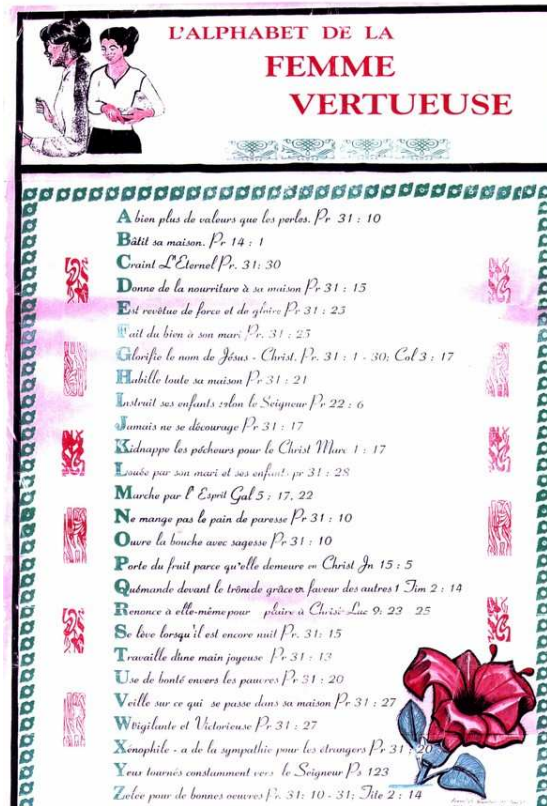 L'ALPHABET DE LA
FEMME
VERTUEUSE
A bien plus de valeurs que les perles. Pr 31 : 10
Bâtit sa maison. Pr 14 : 1
Craint L'Eternel Pr. 31: 30
Donne de la nourriture à sa maison Pr 31 : 15
Est revêtue de force et de gloire Pr 31 : 25
Fait du bien à son mari Pr. 31 : 23
Glorifie le nom de Jésus - Christ. Pr. 31 : 1 - 30; Col 3 : 17
Habille toute sa maison Pr 31 : 21
Instruit ses enfants selon le Seigneur Pr 22 : 6
Jamais ne se décourage Pr 31 : 17
Kidnappe les pécheurs pour le Christ Marc 1 : 17
Louée par son mari et ses enfants pr 31 : 28
Marche par l' Esprit Gal 5 : 17, 22
Ne mange pas le pain de paresse Pr 31 : 10
Ouvre la bouche avec sagesse Pr 31 : 10
Porte du fruit parce qu'elle demeure en Christ Jn 15 : 5
Quémande devant le trône de grâce en faveur des autres 1 Tim 2 : 14
Renonce à elle-même pour plaire à Christ Luc 9: 23 25
Se lève lorsqu'il est encore nuit Pr. 31: 15
Travaille d'une main joyeuse Pr 31 : 13
Use de bonté envers les pauvres Pr 31 : 20
Veille sur ce qui se passe dans sa maison Pr 31 : 27
Wigilante et Victorieuse Pr 31 : 27
Xénophile - a de la sympathie pour les étrangers Pr 31 : 20
Yeux tournés constamment vers le Seigneur Ps 123
Zelée pour de bonnes oeuvres Pr 31: 10 - 31; Tite 2 : 14